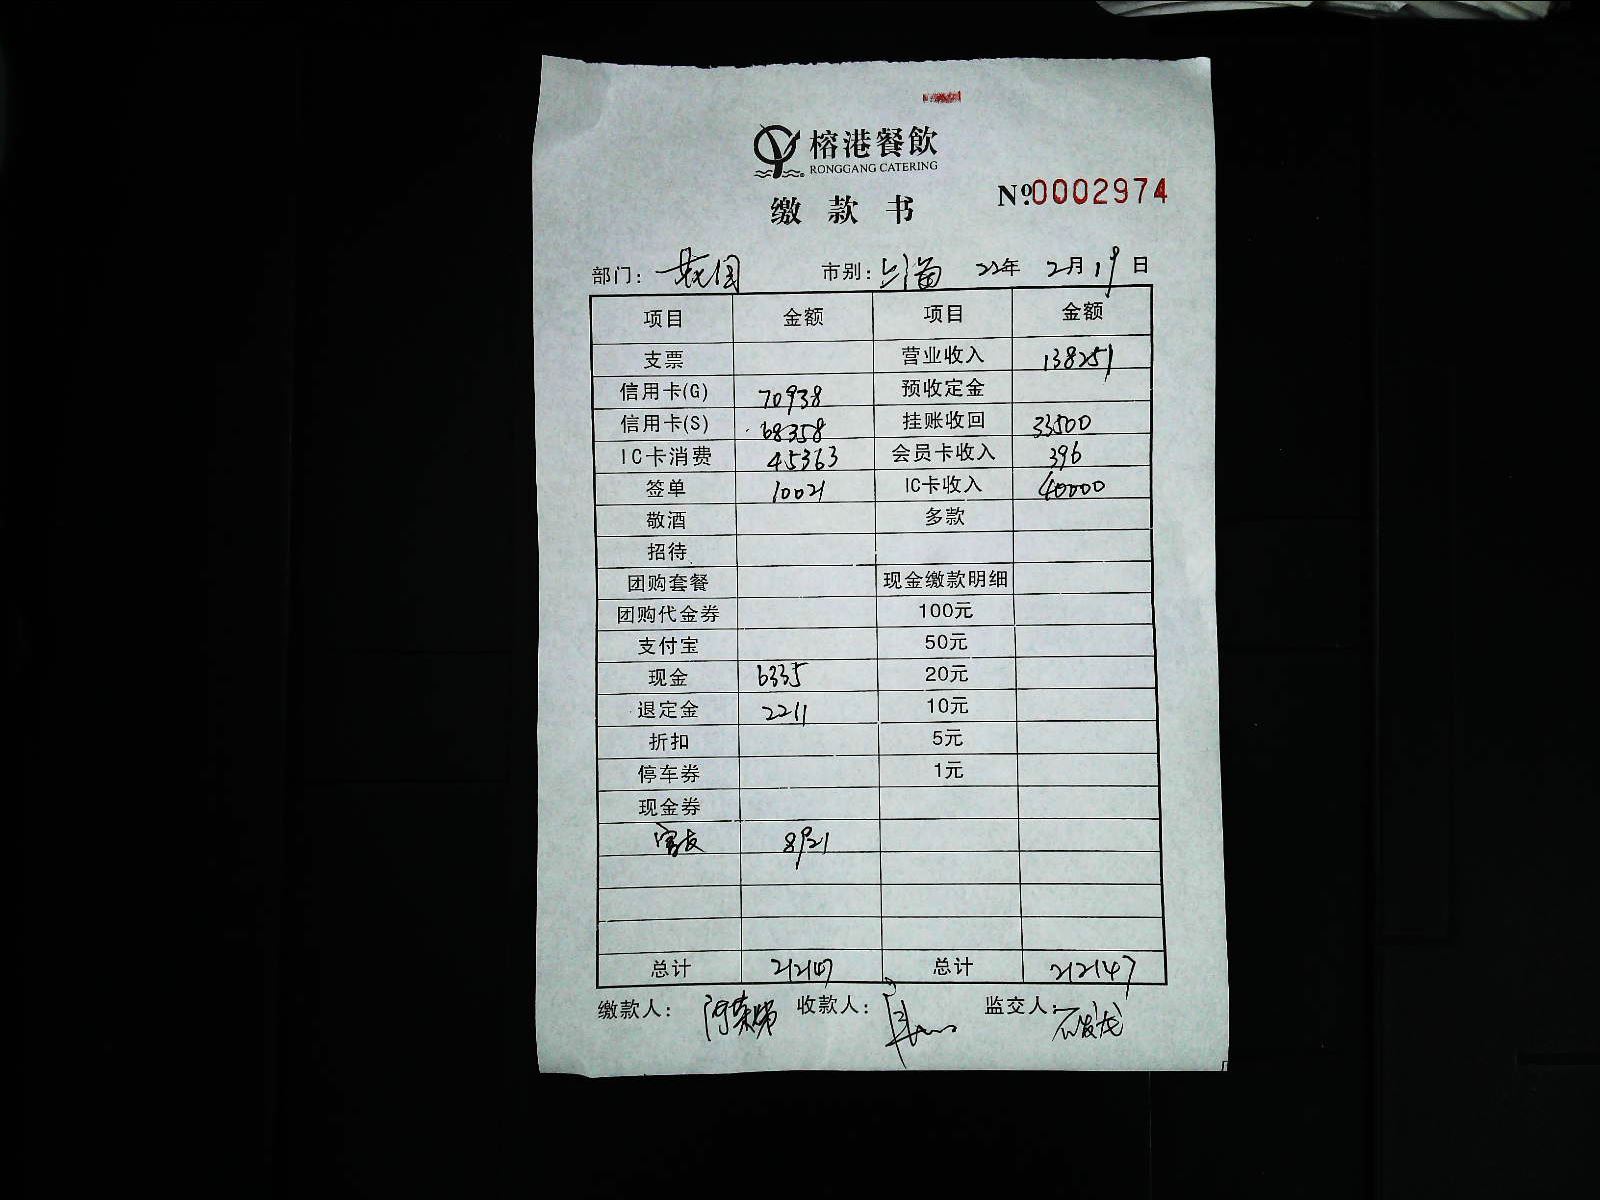 榕港餐飲
RONGGANG CATERING
缴款书
Nº:0002974
部门: 市别: 上海 22年 2月 19日
项目 金额 项目 金额
支票 营业收入 138251
信用卡(G) 70938 预收定金
信用卡(S) 68358 挂账收回 33500
IC卡消费 45363 会员卡收入 396
签单 10021 IC卡收入 40000
敬酒 多款
招待
团购套餐 现金缴款明细
团购代金券 100元
支付宝 50元
现金 6335 20元
退定金 2211 10元
折扣 5元
停车券 1元
现金券
8921
总计 212147 总计 212147
缴款人: 收款人: 监交人: